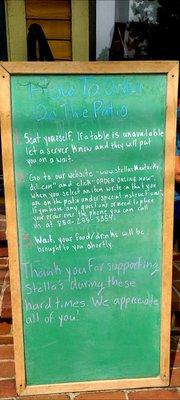 How To Order
On The Patio
1. Seat yourself. If a table is unavailable
let a server know and they will put
you on a wait.
2. Go to our website - "www.stellaskentucky
deli.com" and click "ORDER ONLINE now"
when you select an item write in that you
are on the patio under "special instructions".
If you have any questions or need to place
your order over the phone you can call
us at 859-255-3354.
3. Wait, your food/drinks will be
brought to you shortly.
Thank you for supporting
Stella's during these
hard times. We appreciate
all of you!